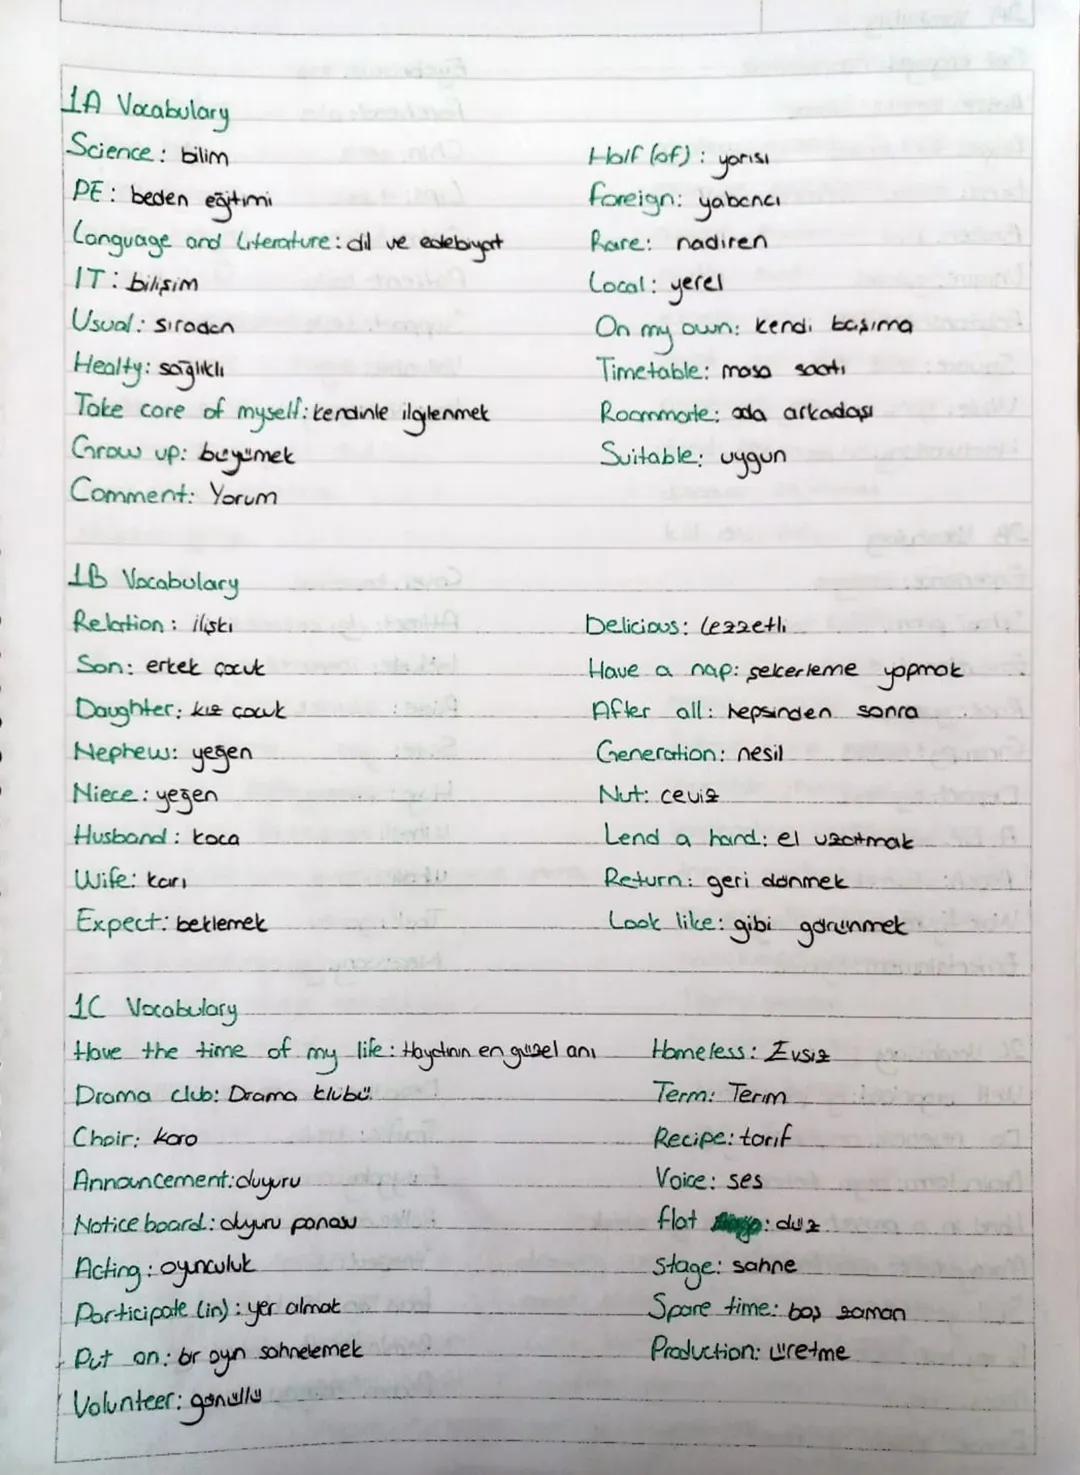 1A Vocabulary
Science: bilim
PE: beden eğitimi
Language and Literature: dil ve edebiyat
IT: bilişim
Usual: sıradan
Healty: sağlıklı
Take care of myself: kendinle ilgilenmek
Grow up: büyümek
Comment: Yorum
Half (of): yarısı
Foreign: yabancı
Rare: nadiren
Local: yerel
On my own: kendi başıma
Timetable: masa saati
Roommate: oda arkadaşı
Suitable: uygun
1B Vocabulary
Relation: ilişki
Son: erkek çocuk
Daughter: kız çocuk
Nephew: yeğen
Niece: yeğen
Husband: koca
Wife: karı
Expect: beklemek
Delicious: Lezzetli
Have a nap: şekerleme yapmak
After all: hepsinden sonra
Generation: nesil
Nut: ceviz
Lend a hand: el uzatmak
Return: geri dönmek
Look like: gibi görünmek
1C Vocabulary
Have the time of my life: Hayatının en güzel anı
Drama club: Drama klübü
Choir: koro
Announcement: duyuru
Notice board: duyuru panosu
Acting: oyunculuk
Participate (in): yer almak
Put on: bir oyn sahnelemek
Volunteer: gönüllü
Homeless: Evsiz
Term: Terim
Recipe: tarif
Voice: ses
flat : düz
Stage: sahne
Spare time: boş zaman
Production: üretme